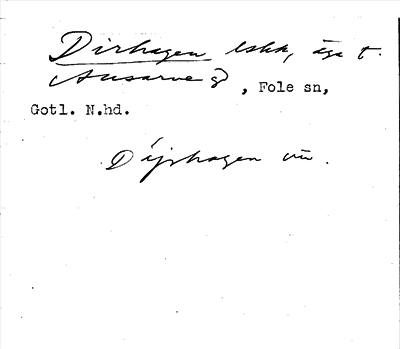 Dirhagen lskk, äga t.
Ausarve g
, Fole sn,
Gotl. N.hd.
Dijrhagen